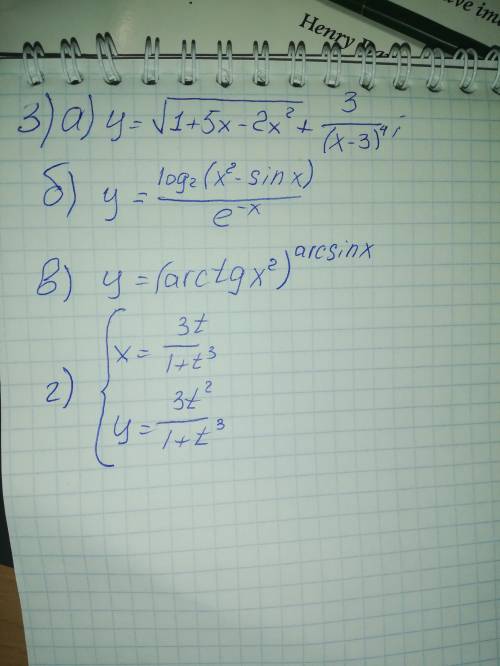 ave im
Henry
3) а) y = √(1+5x-2x²) + 3/(x-3)⁴;
б) y = log₂(x²-sin x)/e⁻ˣ
в) y = (arctg x²)^arcsin x
г) { x = 3t/(1+t³)
y = 3t²/(1+t³)